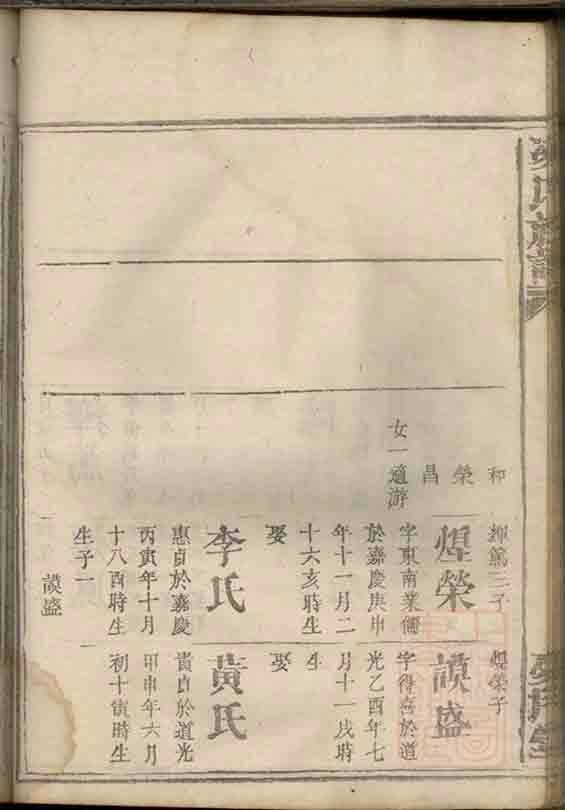 氏族譜
和
榮
昌
女一適游
煇篤三子
煌榮
字東南業儒
於嘉慶庚申
年十一月二
十六亥時生
娶
李氏
惠貞於嘉慶
丙寅年十月
十八酉時生
生子一
謨盛
煌榮子
謨盛
字得喜於道
光乙酉年七
月十一戌時
生
娶
黃氏
貴貞於道光
甲申年六月
初十寅時生